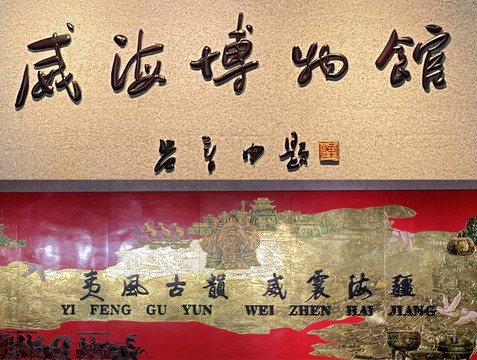 威海博物馆
夷風古韻 威震海疆
YI FENG GU YUN WEI ZHEN HAI JIANG